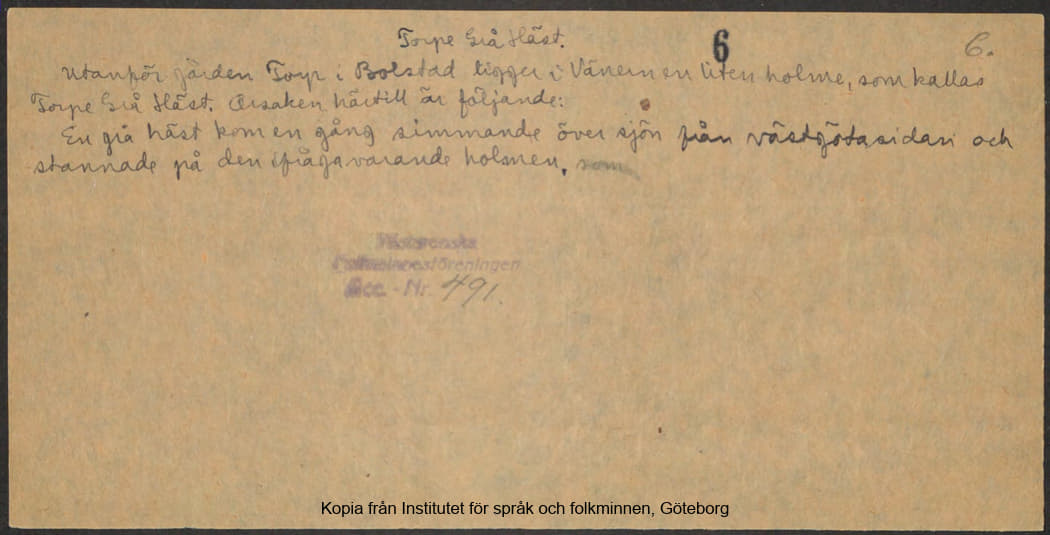 Torpe Grå Häst.
6
6.
Utanför gården Torp i Bolstad ligger i Vänern en liten holme, som kallas
Torpe Grå Häst. Orsaken härtill är följande:
En grå häst kom en gång simmande över sjön från västgötasidan och
stannade på den ifrågavarande holmen, som
Västsvenska
Folkminnesföreningen
Acc. - Nr. 491.
Kopia från Institutet för språk och folkminnen, Göteborg